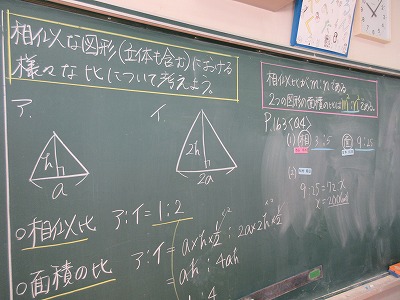 相似な図形(立体も含む)における
様々な比について考えよう。
ア.
イ.
h
a
2h
2a
○相似比 ア:イ=1:2
○面積の比 ア:イ=a×h×1/2:2a×2h×1/2
=ah:4ah
1:4
相似比がm:nである
2つの図形の面積の比はm²:n²である。
P.163<Q4>
(1) 相 3:5 面 9:25
(2)
9:25=72:x
x=200cm²